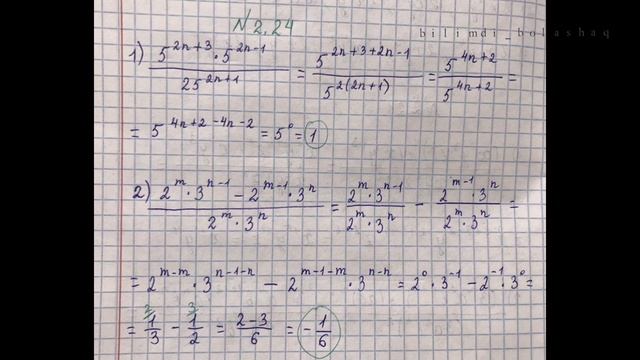 bilimdi_bolashaq
N 2.24
1) (5^(2n+3) · 5^(2n-1)) / 25^(2n+1) = 5^(2n+3+2n-1) / 5^(2(2n+1)) = 5^(4n+2) / 5^(4n+2) =
= 5^(4n+2-4n-2) = 5^0 = 1
2) (2^m · 3^(n-1) - 2^(m-1) · 3^n) / (2^m · 3^n) = (2^m · 3^(n-1)) / (2^m · 3^n) - (2^(m-1) · 3^n) / (2^m · 3^n) =
= 2^(m-m) · 3^(n-1-n) - 2^(m-1-m) · 3^(n-n) = 2^0 · 3^(-1) - 2^(-1) · 3^0 =
= 2/ 1/3 - 3/ 1/2 = (2-3)/6 = -1/6